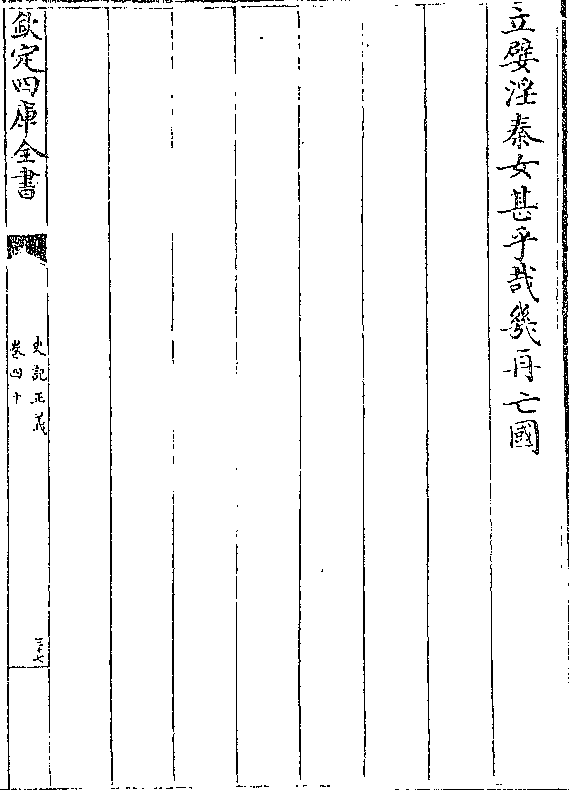 立嬖淫秦女甚乎哉幾再亡國
欽定四庫全書
史記正義
卷四十
三十七